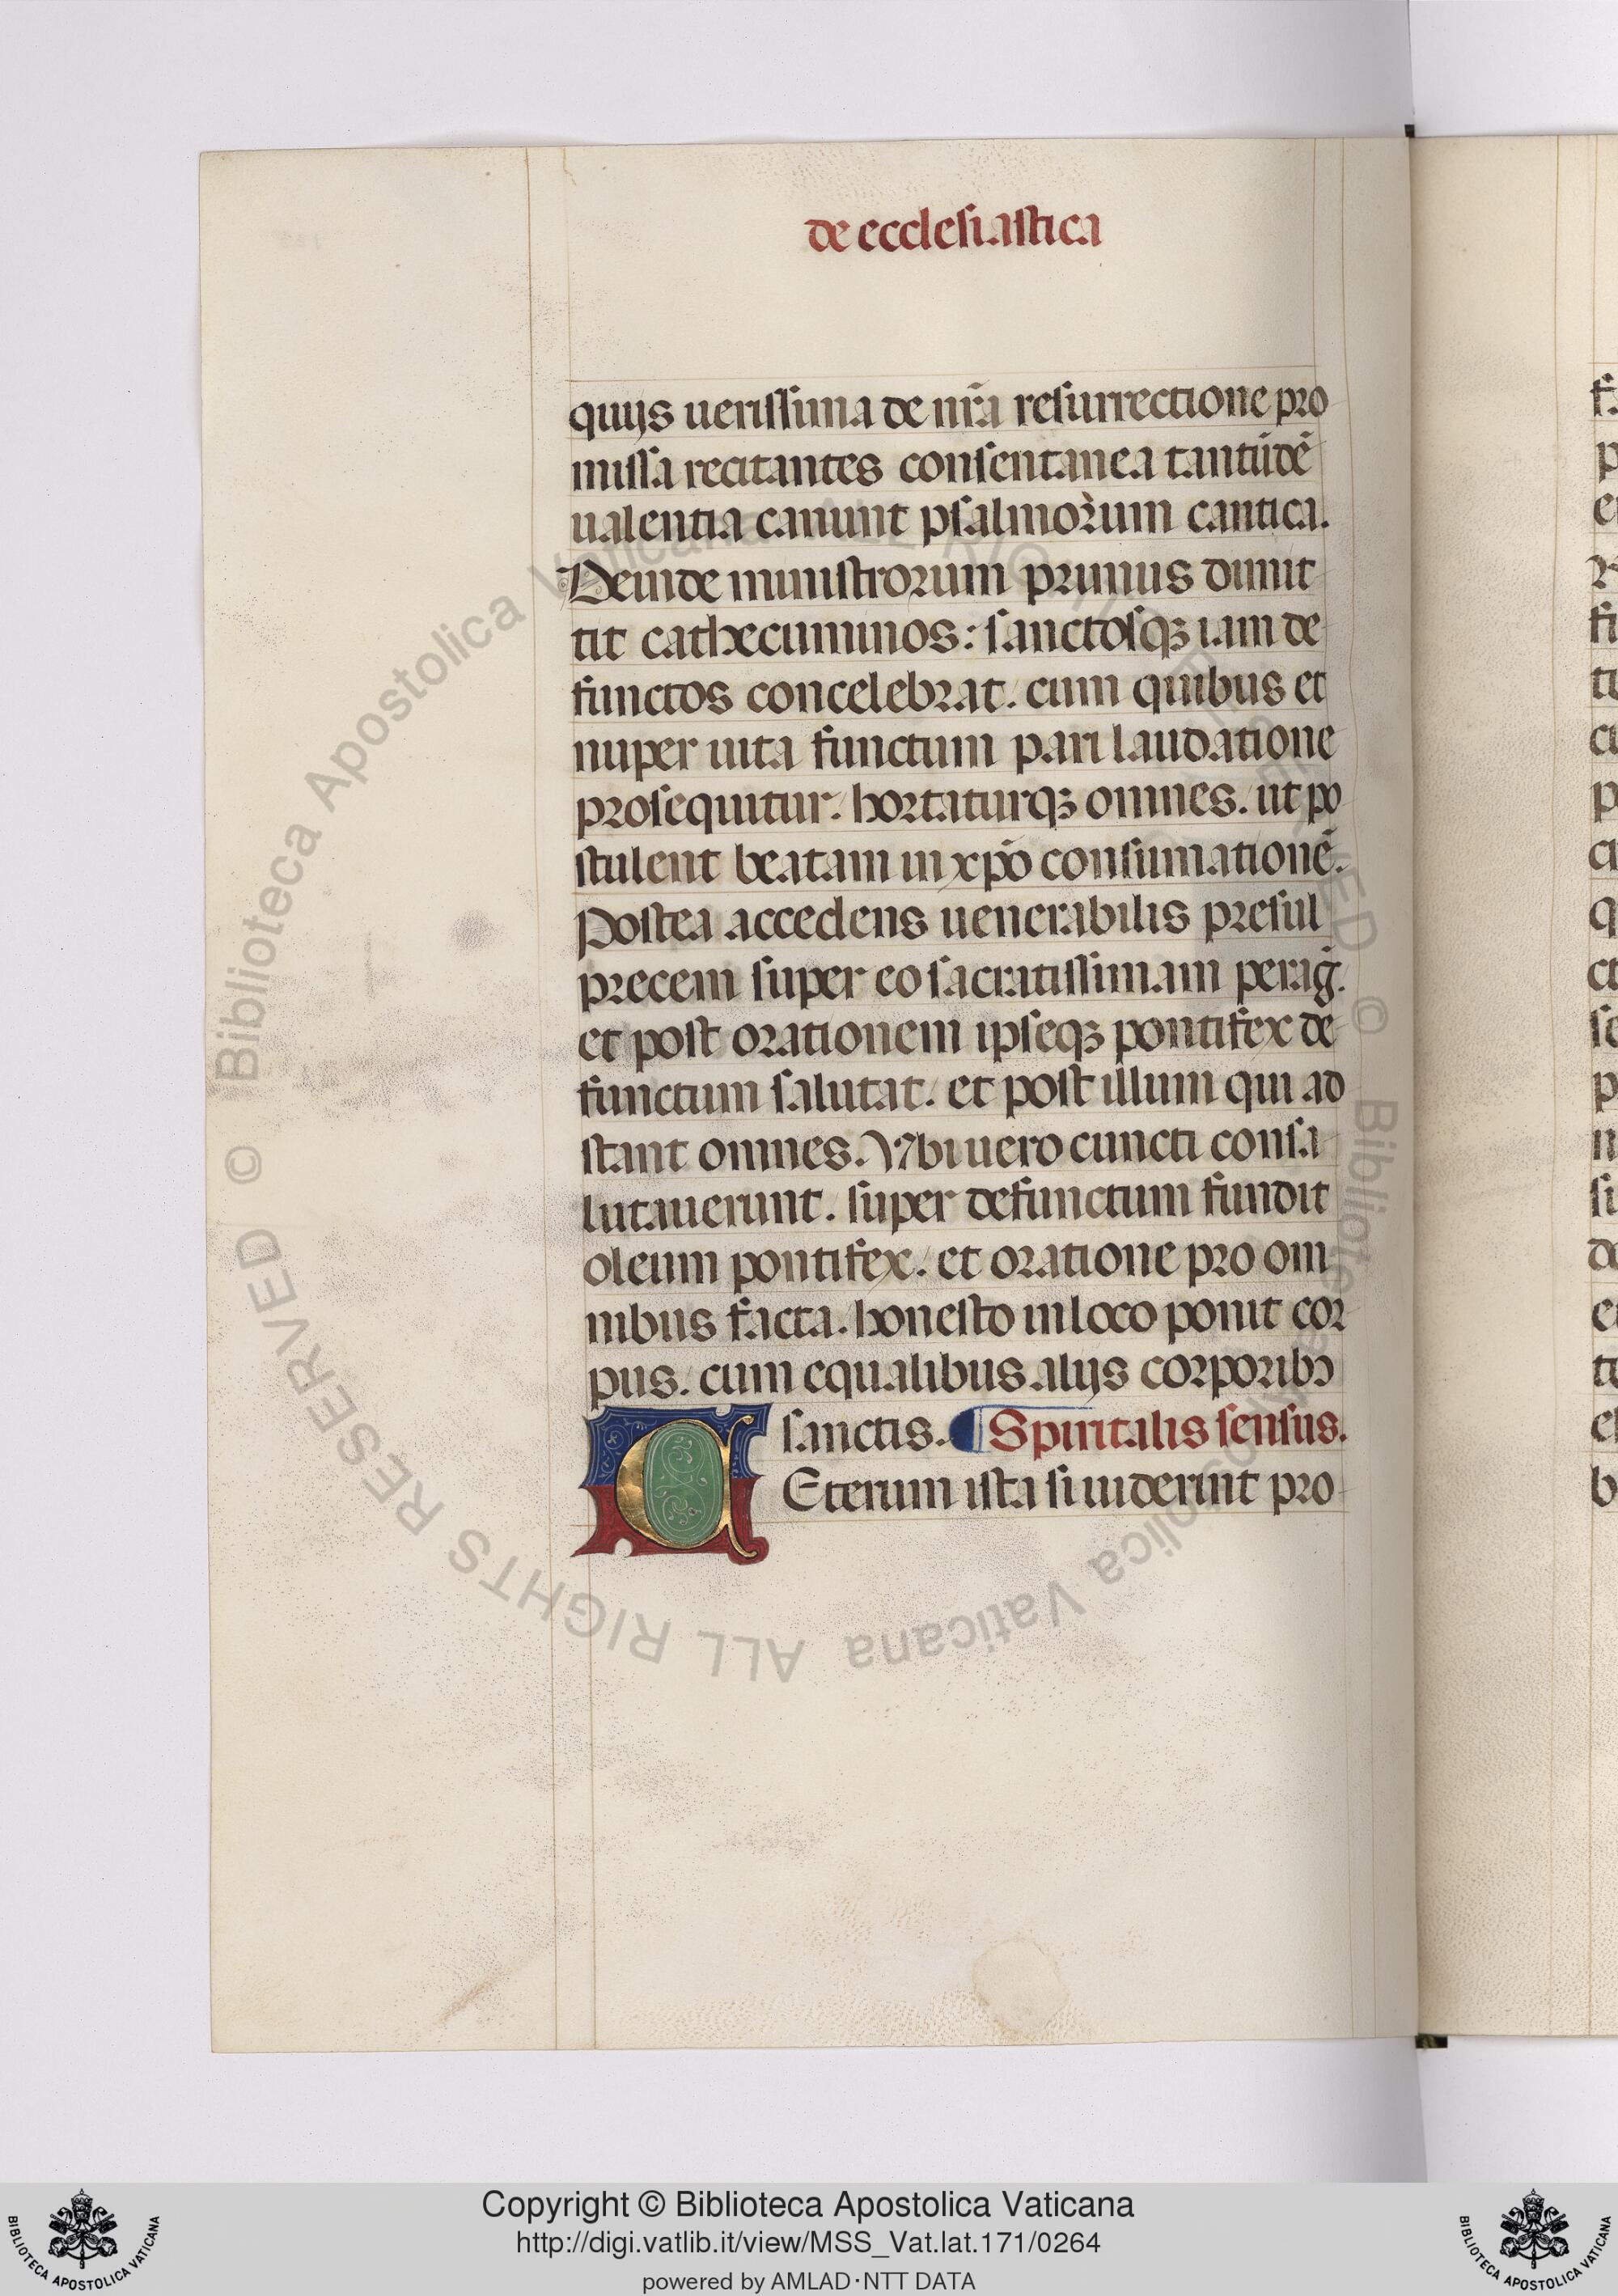 de ecclesiastica
quijs uerissima de nr̃a resurrectione pro
missa recitantes consentanea tantũdẽ
ualentia canunt psalmorum cantica.
Deinde ministrorum primus dimit
tit cathecuminos: sanctosqꝫ iam de
functos concelebrat. cum quibus et
nuper uita functum pari laudatione
prosequitur. hortaturqꝫ omnes. ut po
stulent beatam in xp̃o consumationẽ.
Postea accedens uenerabilis presul
precem super eo sacratissimam perag̃.
et post orationem ipseqꝫ pontifex de
functum salutat. et post illum qui ad
stant omnes. Vbi uero cuncti consa
lutauerunt. super defunctum fundit
oleum pontifex. et oratione pro om
nibus facta. honesto in loco ponit cor
pus. cum equalibus alijs corporibꝰ
sanctis. ¶ Spiritalis sensus.
CEterum ista si uiderint pro
© Biblioteca Apostolica Vaticana ALL RIGHTS RESERVED © Biblioteca Apostolica Vaticana ALL RIGHTS RESERVED
Copyright © Biblioteca Apostolica Vaticana
http://digi.vatlib.it/view/MSS_Vat.lat.171/0264
powered by AMLAD·NTT DATA
BIBLIOTECA APOSTOLICA VATICANA
BIBLIOTECA APOSTOLICA VATICANA